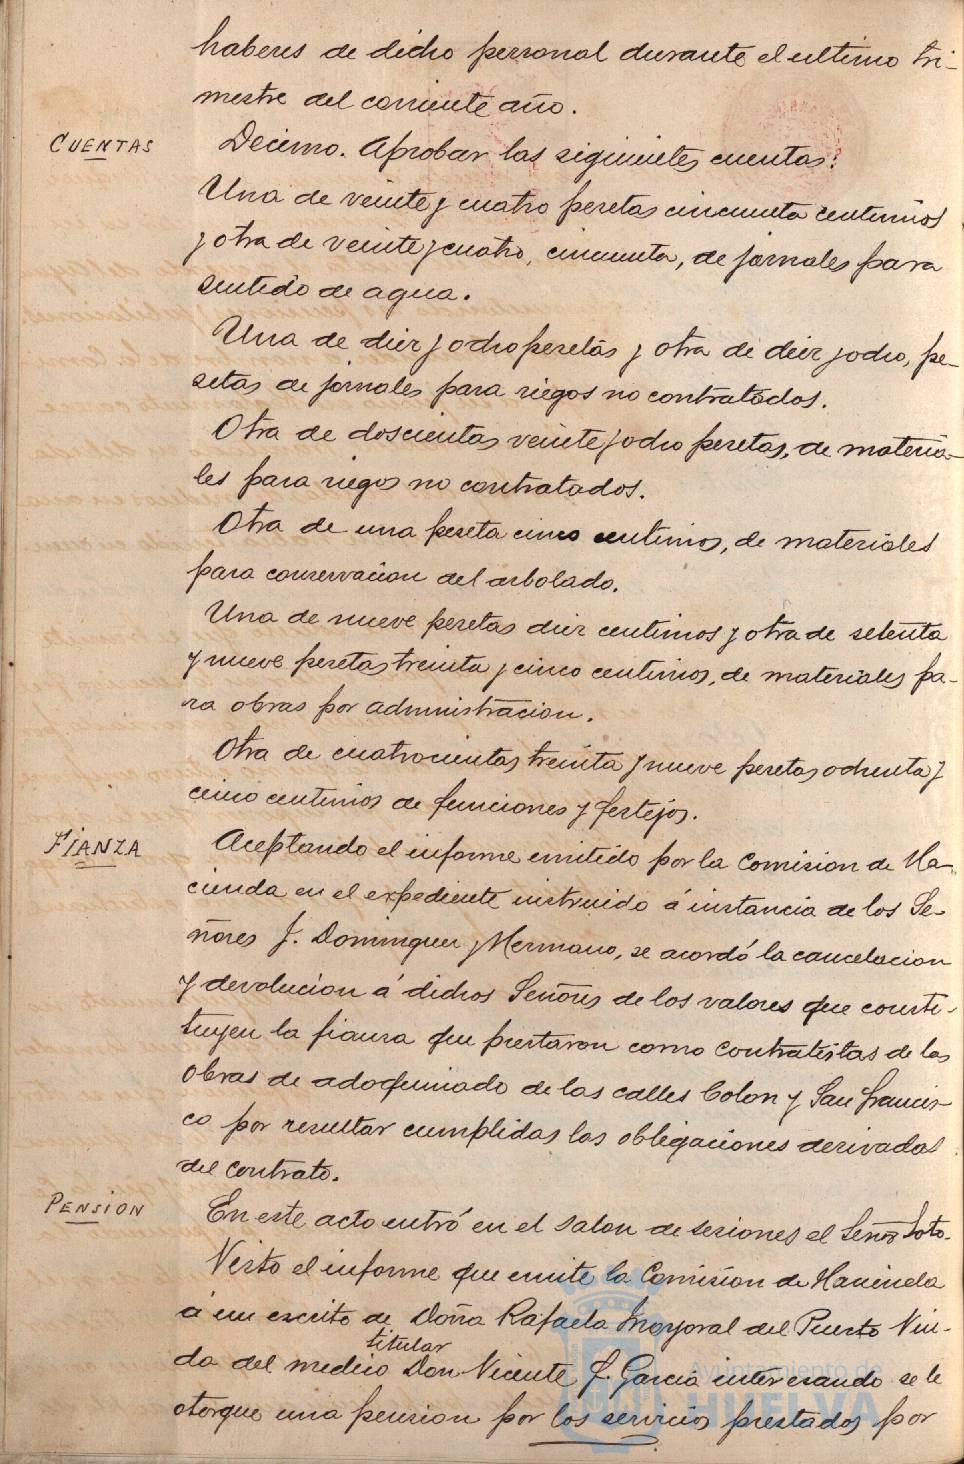 haberes de dicho personal durante el ultimo tri-
mestre del corriente año.
CUENTAS
Decimo. Aprobar las siguientes cuentas:
Una de veinte y cuatro pesetas cincuenta centimos
y otra de veinte y cuatro, cincuenta, de jornales para
sentido de agua.
Una de diez y ocho pesetas y otra de diez y ocho, pe-
setas de jornales para riegos no contratados.
Otra de doscientas veinte y ocho pesetas, de materia-
les para riegos no contratados.
Otra de una peseta cinco centimos, de materiales
para conservacion del arbolado.
Una de nueve pesetas diez centimos y otra de setenta
y nueve pesetas treinta y cinco centimos, de materiales pa-
ra obras por administracion.
Otra de cuatrocientas treinta y nueve pesetas ochenta y
cinco centimos de funciones y festejos.
FIANZA
Aceptando el informe emitido por la Comision de Ha-
cienda en el expediente instruido á instancia de los Se-
ñores J. Dominguez y Hermano, se acordó la cancelacion
y devolucion á dichos Señores de los valores que consti-
tuyen la fianza que prestaron como contratistas de las
obras de adoquinado de las calles Colon y San Francis-
co por resultar cumplidas las obligaciones derivadas
del contrato.
PENSION
En este acto entró en el salon de sesiones el Señor Soto.
Visto el informe que emite la Comision de Hacienda
á un escrito de Doña Rafaela Mayoral del Puerto Viu-
titular
da del medico Don Vicente F. Garcia interesando se le
otorgue una pension por los servicios prestados por
Ayuntamiento de
HUELVA